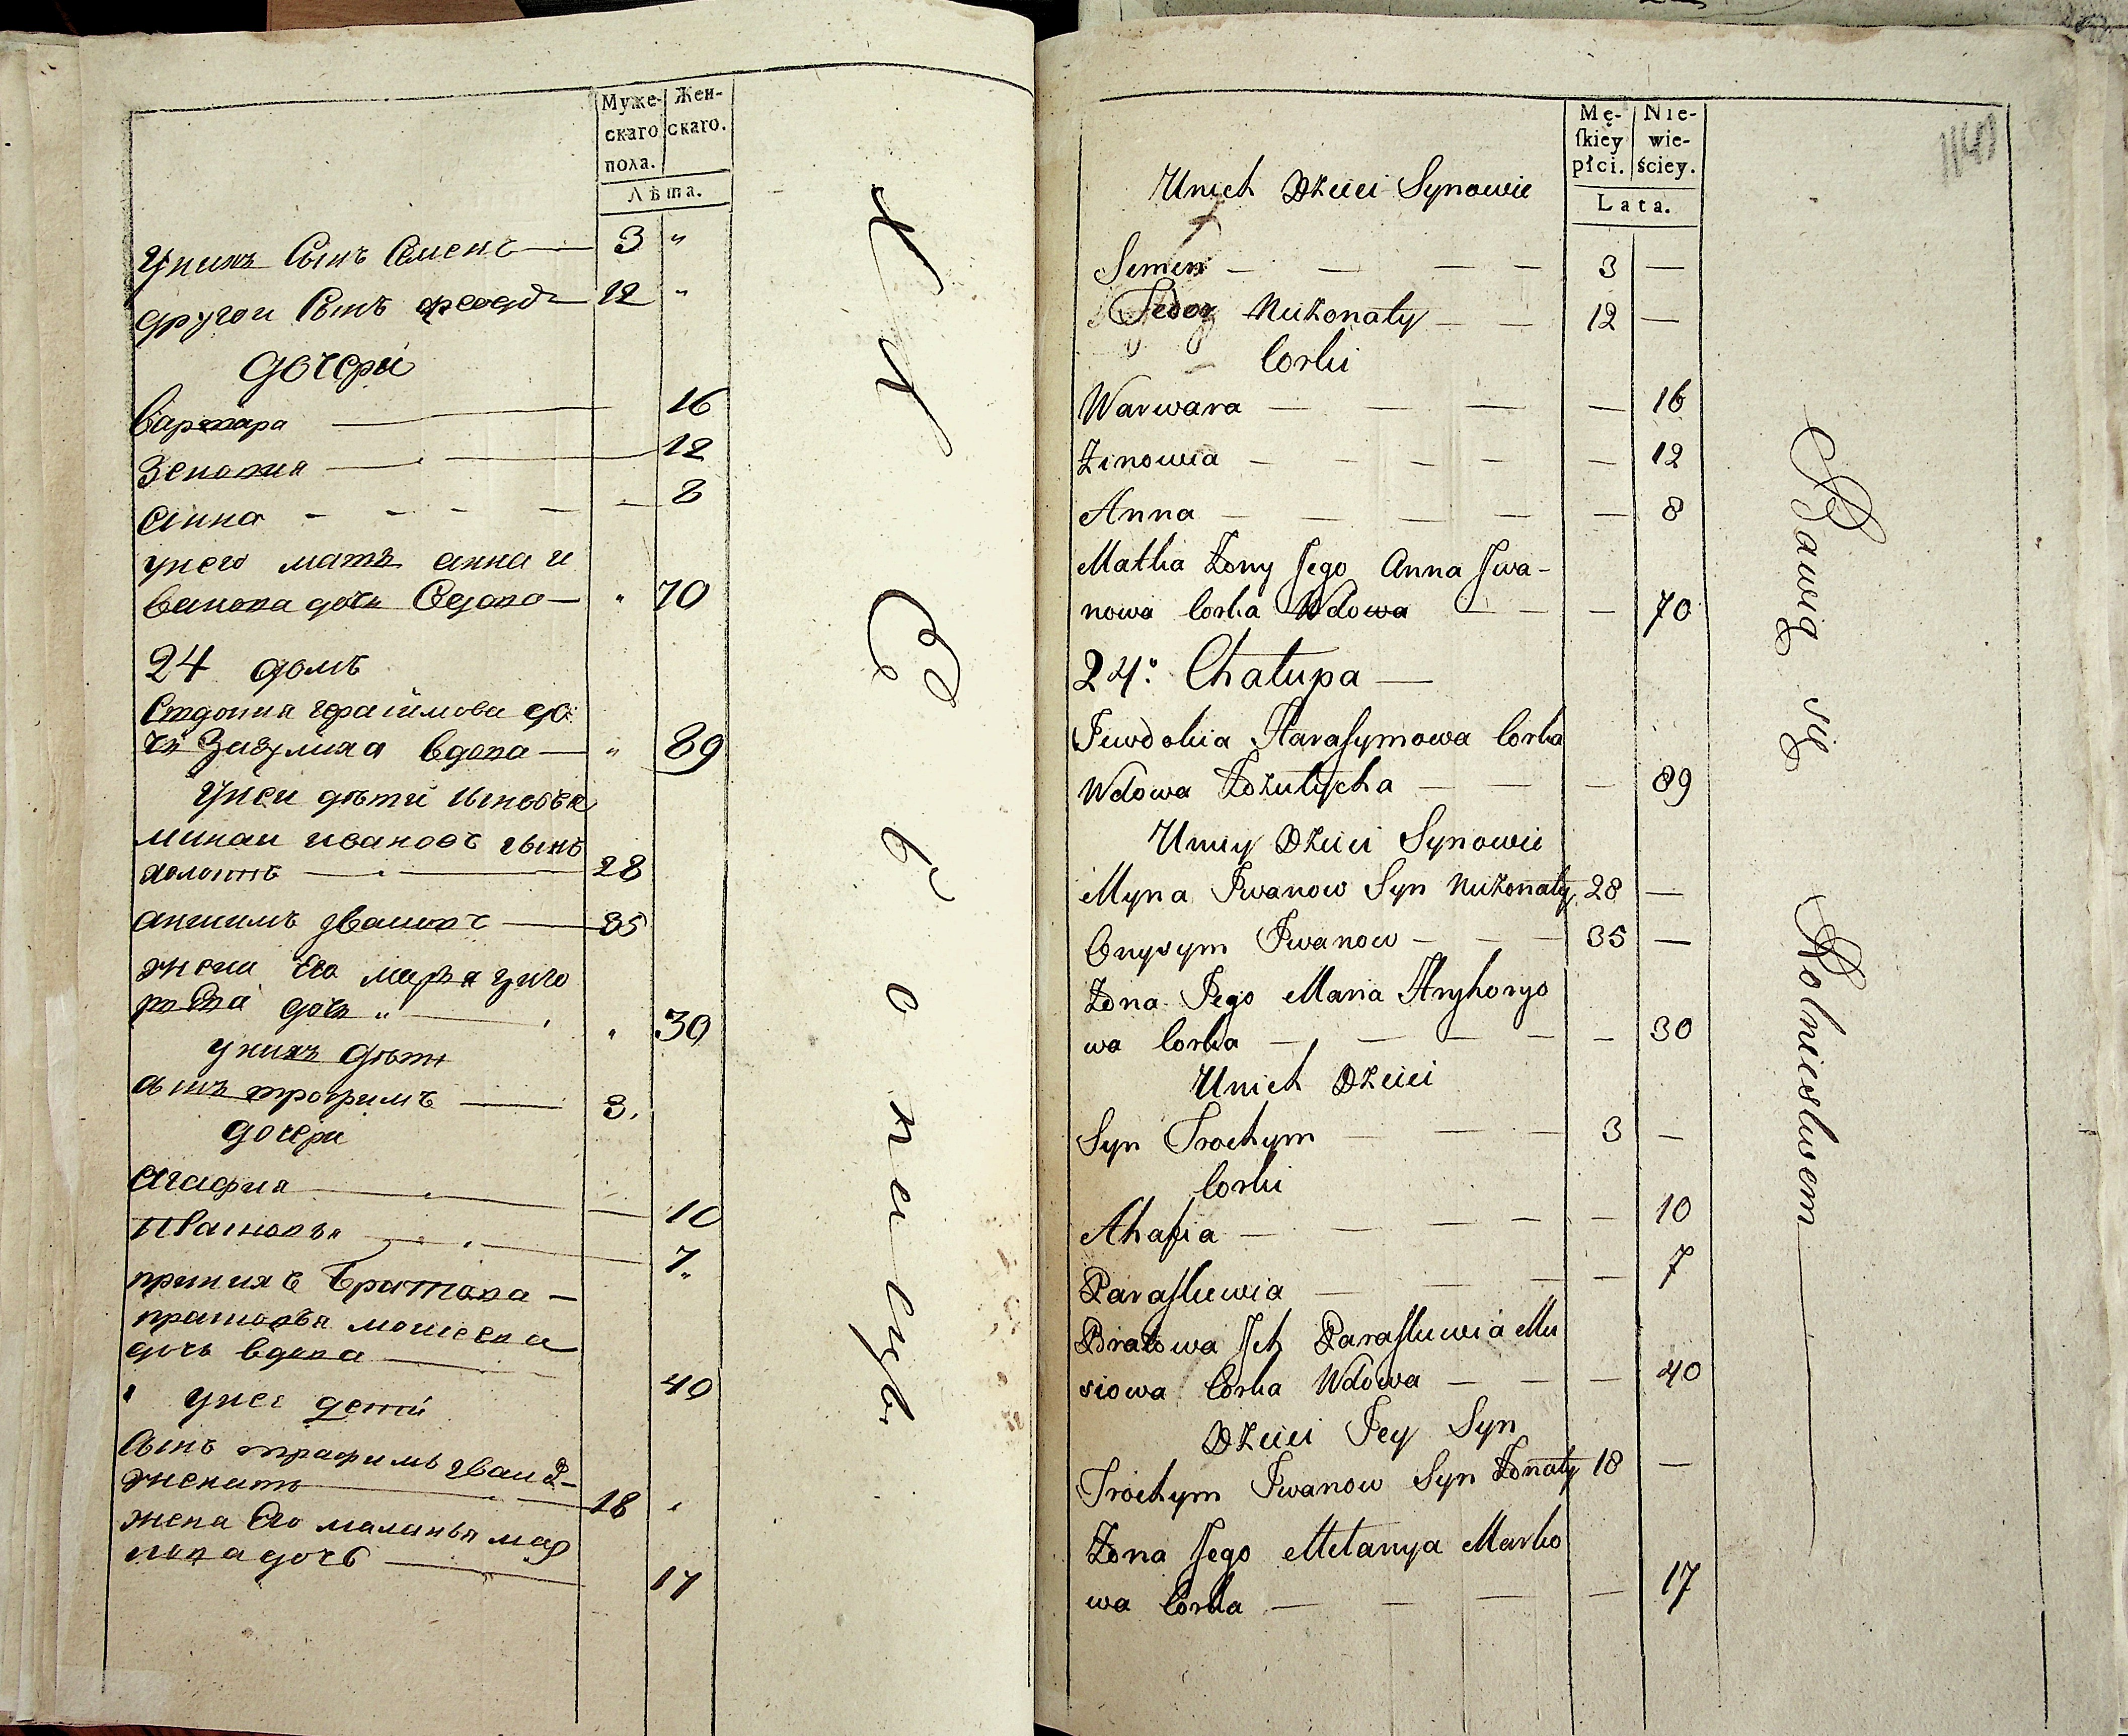 Муже-
скаго
пола.
Жен-
скаго.
Лѣта.
унихъ Сынъ Семенъ — 3 "
другои Сынъ федоръ 12 "
дочери
Варвара — 16
Зеновия — 12
Анна - - - - 8
унего мать анна и
ванова дочь Вдова — " 70
24 домъ
Евдокия гарасимова до
чь Зазулиха вдова — " 89
Унеи дѣти сыновья
минаи ивановъ сынъ
холостъ — 28
анисимъ Ивановъ — 35
жена Его марья григо
рьева дочь " " 30
унихъ дѣти
сынъ трофимъ — 3.
дочери
Агафия — 10
Парасковья 7
ихъ Братова —
прасковья моисеева
дочь вдова 40
унее дети
Сынъ трафимъ Иван
женатъ 18
жена Его маланья мар
кова дочь 17
Mę-
ſkiey
płci.
Nie-
wie-
ściey.
Lata.
1140
Unich Dzieci Synowie
Semen — — — — 3 —
Fedor Nieżonaty — — 12 —
Corki
Warwara — — — — 16
Zinowia — — — — — 12
Anna — — — — — 8
Matka Żony Jego Anna Jwa-
nowa Corka Wdowa — — — 70
24° Chałupa —
Jewdokia Harasymowa Corka
Wdowa Zozulycha — — — 89
Uniey Dzieci Synowie
Myna Jwanow Syn Nieżonaty 28 —
Onysym Jwanow — — — 35 —
Żona Jego Maria Hryhoryo
wa Corka — — — — — 30
Unich Dzieci
Syn Trochym — — — 3 —
Corki
Ahafia — — — — — 10
Paraskiewia — — — — 7
Bratowa Jch Paraskiewia Mu
siowa Corka Wdowa — — — 40
Dzieci Jey Syn
Trochym Jwanow Syn Żonaty 18 —
Żona Jego Melanya Marko
wa Corka — — — — 17
Bawią się Rolnictwem